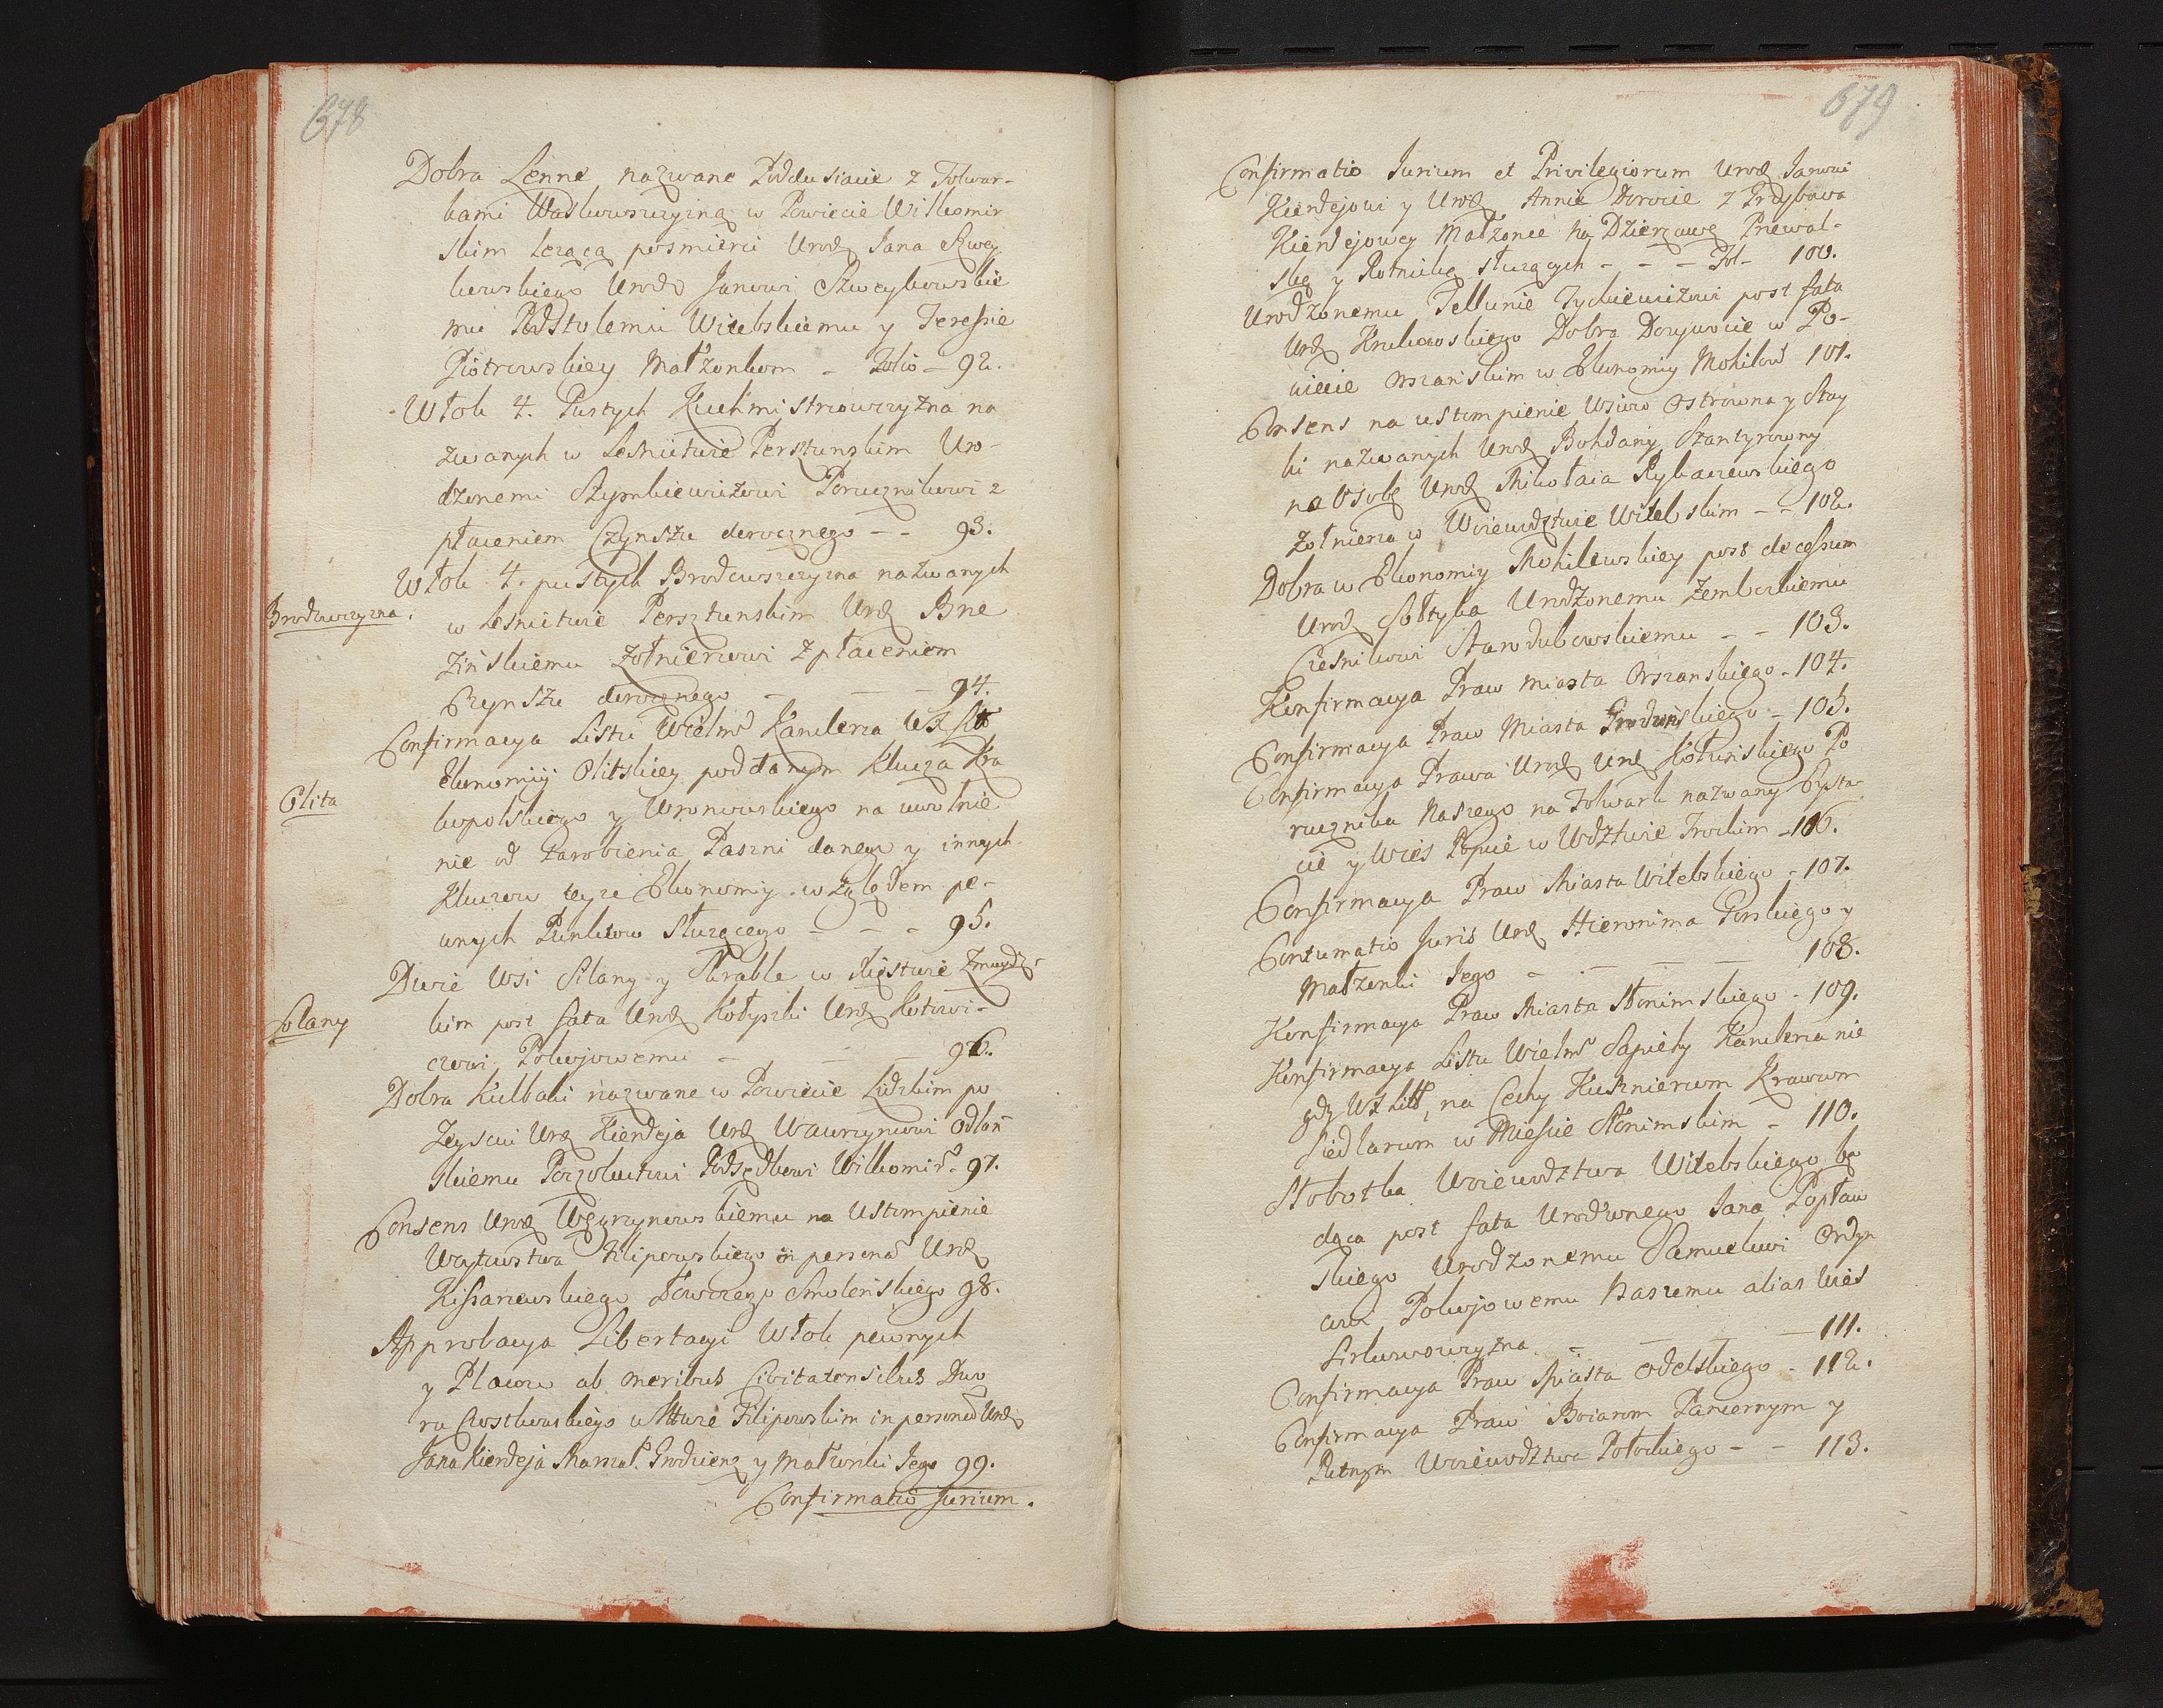 678
Dobra Lenne nazwane Poddusiacie z Folwar-
kami Waskowszczyzną w Powiecie Wilkomir
skim leżącą po śmierci Urodz Jana Szwey
kowskiego Urodz Janowi Szweykowskie
mu PodStolemu Witebskiemu y Teressie
Piotrowskiey Małżonkom - Folio - 92.
Włok 4. Pustych Kuchmistrowczyzna na
zwanych w Lesnictwie Persztunskim Uro-
dzonemu Szymkiewiczowi Porucznikowi z
płaceniem Czynszu dorocznego - - 93.
Włok 4. pustych Brodowszczyzna nazwanych
Brodowszczyzna.
w Lesnictwie Persztunskim Urodz Brze
zińskiemu Żołnierzowi z płaceniem
Czynszu dorocznego - - - 94.
Confirmacya Listu Wielmo Kanclerza WXLitt
Ekonomiÿ Olitskiey poddanym Klucza Kra
Olita
kopolskiego y Wronowskiego na uwolnie
nie od zarobienia Paszni danego y innych
Kluczow teyże Ekonomiy względem pe-
wnych Punktow Służącego - - - 95.
Dwie Wsi Silany y Skrable w Xięstwie Zmuydz-
Solany
kim post fata Urodz Kotyszki Urodz Kotowi-
czowi Pokojowemu - - - 96.
Dobra Kulbaki nazwane w Powiecie Lidzkim po
Zeysciu Urodz Kierdeja Urodz Wawrzynowi Odlań
skiemu Podsędkowi Wilkomir. 97.
Consens Urodz Węgrzynowskiemu na Ustompienie
Woytowstwa Filipowskiego in personam Urodz
Kissarzewskiego Łowczego Smoleńskiego 98.
Approbacya Libertacyi Włok pewnych
y Placow ab oneribus Civitatensibus Dwo
ru Chostkowskiego w Sttwie Filipowskim in personam Urodz
Jana Kierdeja Marszal. Grodziens y Małżonki Jego 99.
Confirmatio Jurium.
679
Confirmatio Jurium et Privilegiorum Urodz Janowi
Kierdejowi y Urodz Annie Dorocie z Grzybowa
Kierdejowey Małżonce na Dzierzawę Przewal-
skę y Rotnicką służących - - - Fol - 100.
Urodzonemu Fellunie Tychiewiczowi post fata
Urodz Krukowskiego Dobra Dorywocie w Po-
wiecie Orszańskim w Ekonomiy Mohilow 101.
Consens na ustompienie Wsiow Ostrowna y Stay
ki nazwanych Urodz Bohdany Szantyrowny
na Osobę Urodz Mikołaia Rybaczewskiego
Zołnierza w Woiewodztwie Witebskim - - 102.
Dobra w Ekonomiy Mohilewskiey post decessum
Urodz Sołtyka Urodzonemu Zembockiemu
Czesnikowi Starodubowskiemu - - 103.
Konfirmacya Praw Miasta Orszanskiego - 104.
Confirmacya Praw Miasta Grodzinskiego - 105.
Confirmacya Prawa Urodz Urodz Kotunskiego Po
rucznika Naszego na Folwark nazwany Pysta-
cie y Wieś Popcie w Wdztwie Trockim - 106.
Confirmacya Praw Miasta Witebskiego - 107.
Confirmatio Juris Urodz Hieronima Gorskiego y
Małżonki Jego - - - - 108.
Konfirmacya Praw Miasta Słonimskiego - 109.
Konfirmacya Listu Wielmo Sapiehy Kanclerza nie
gdy WXLitt, na Cechy Kusznierzom Krawcom
Siedlarzom w Mieście Słonimskim - 110.
Słobotka Woiewodztwa Witebskiego bę
dąca post fata Urodzonego Jana Popław
skiego Urodzonemu Samuelowi Ordyn
cowi Pokojowemu Naszemu alias Wies
Sirkowowczyzna - - - - 111.
Confirmacya Praw Miasta Odelskiego - 112.
Confirmacya Praw Boiarom Pancernym y
Putnym Woiewodztwa Połockiego - - 113.